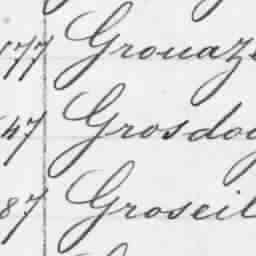 177 Grouaz
47 Grosdog
87 Groseil